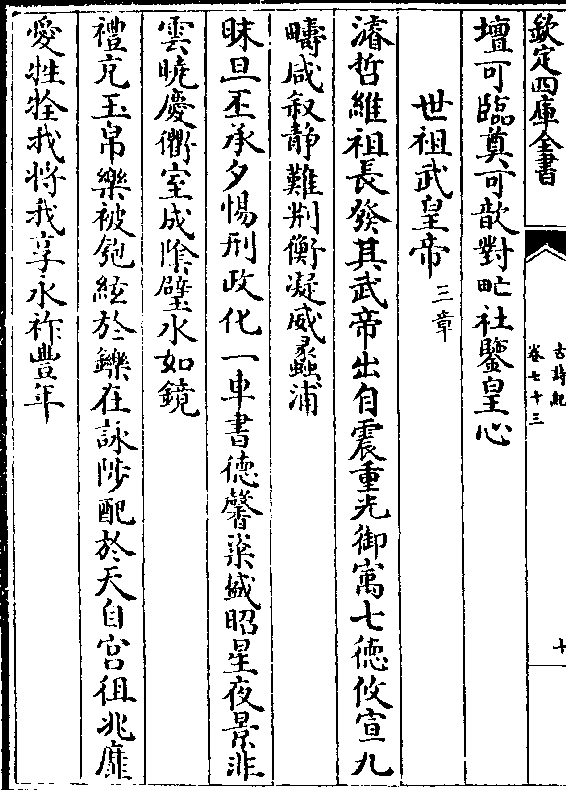 欽定四庫全書
古詩紀
卷七十三
十
壇可臨奠可歆對甿社鑒皇心
世祖武皇帝三章
濬哲維祖長發其武帝出自震重光御㝢七德攸宣九
疇咸叙静難荆衡凝威蠡浦
昧旦丕承夕惕刑政化一車書德馨粢盛昭星夜景非
雲曉慶衢室成陰璧水如鏡
禮充玉帛樂被匏絃於鑠在詠陟配於天自宫徂兆靡
愛牲牷我將我享永祚豐年